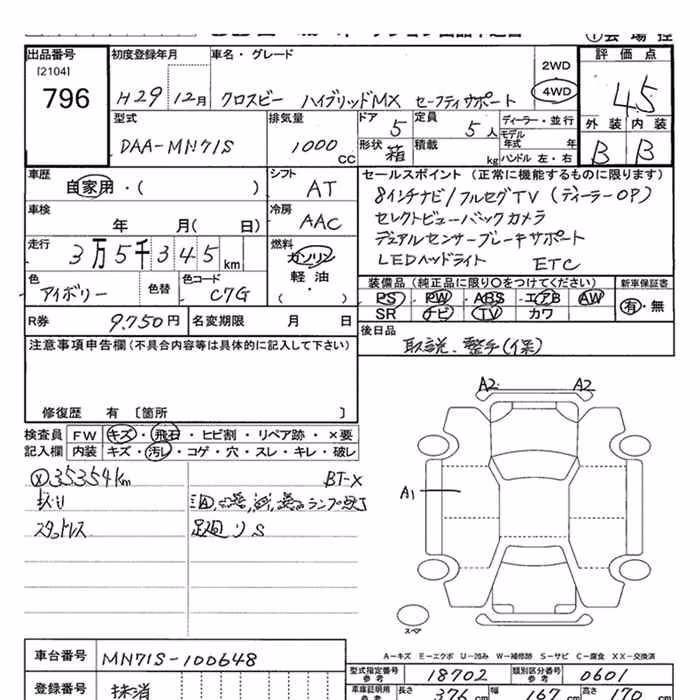 出品番号
[2104]
796
初度登録年月
H29 12月
車名・グレード
クロスビー ハイブリッドMX セーフティサポート
2WD
4WD
評価点
4.5
外装 内装
B B
型式
DAA-MN71S
排気量
1000 CC
ドア 5
定員 5人
形状 箱
積載 kg
ディーラー・並行
モデル年式 年式
ハンドル 左・右
車歴
自家用・( )
シフト
AT
車検
年 月( 日)
冷房
AAC
走行
3万5千345km
燃料
ガソリン
軽・油
・( )
色
アイボリー
色替
色コード
C7G
R券 9.750円
名変期限 月 日
セールスポイント(正常に機能するものに限ります)
8インチナビ/フルセグTV(ディーラーOP)
セレクトビューバックカメラ
デュアルセンサーブレーキサポート
LEDヘッドライト ETC
装備品(純正品に限り○をつけてください)
PS PW ABS エアB AW
SR ナビ TV カワ
新車保証書
有・無
後日品
取説、整手(保)
注意事項申告欄(不具合内容等は具体的に記入して下さい)
修復歴 有 〔箇所 〕
検査員 FW キズ・飛石・ヒビ割・リペア跡・×要
記入欄 内装 キズ・汚し・コゲ・穴・スレ・キレ・破レ
35354km
BT-X
スタットレス
足廻りS
A2 A2
A1
スペア
A-キズ E-エクボ U-凹み W-補修跡 S-サビ C-腐食 XX-交換済
車台番号 MN71S-100648
登録番号 抹消
型式指定番号 参考 18702
類別区分番号 参考 0601
車庫証明用 参考 長さ 376cm 幅 167cm 高さ 170cm